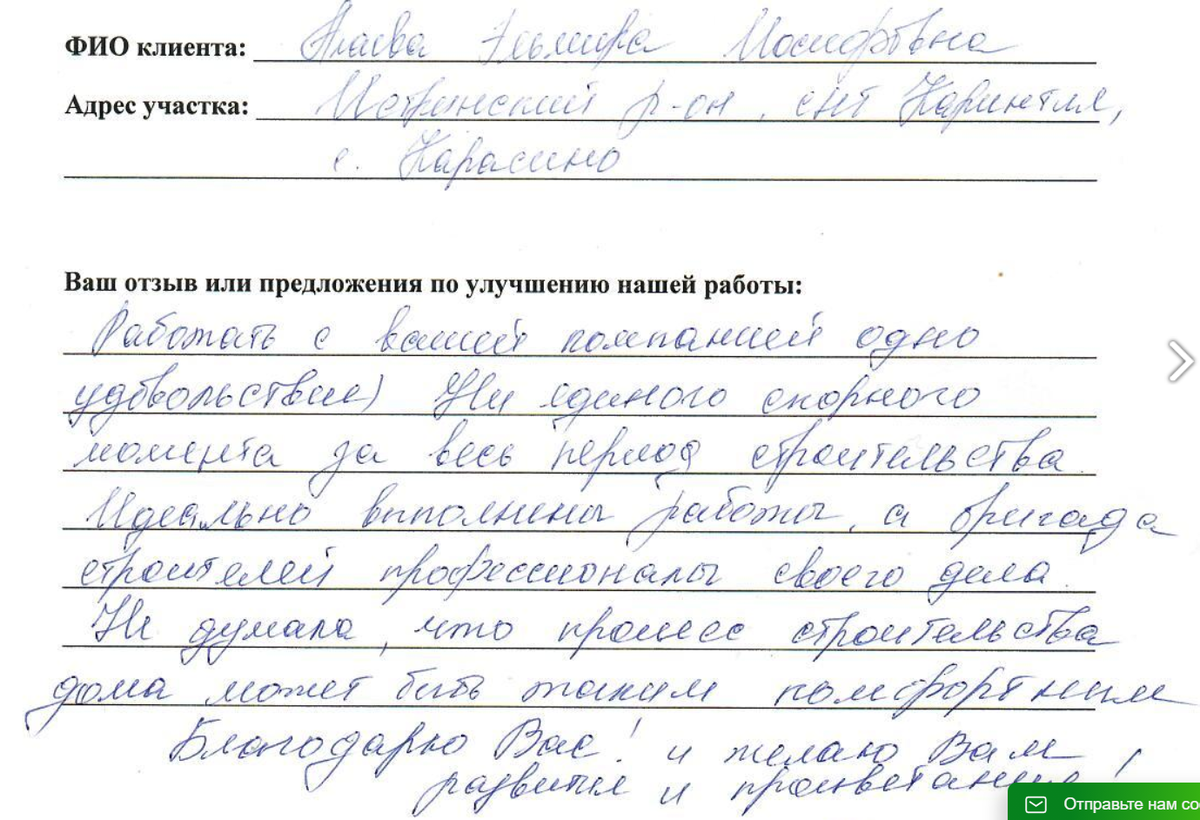 ФИО клиента: Эльмира
Адрес участка: Истринский р-он, снт Каринтия,
с. Карасино
Ваш отзыв или предложения по улучшению нашей работы:
Работать с вашей компанией одно
удовольствие) Ни единого спорного
момента за весь период строительства
Идеально выполнены работы, а бригада
строителей профессионалы своего дела.
Не думала, что процесс строительства
дома может быть таким комфортным
Благодарю Вас! и желаю Вам
развития и процветания!
Отправьте нам со